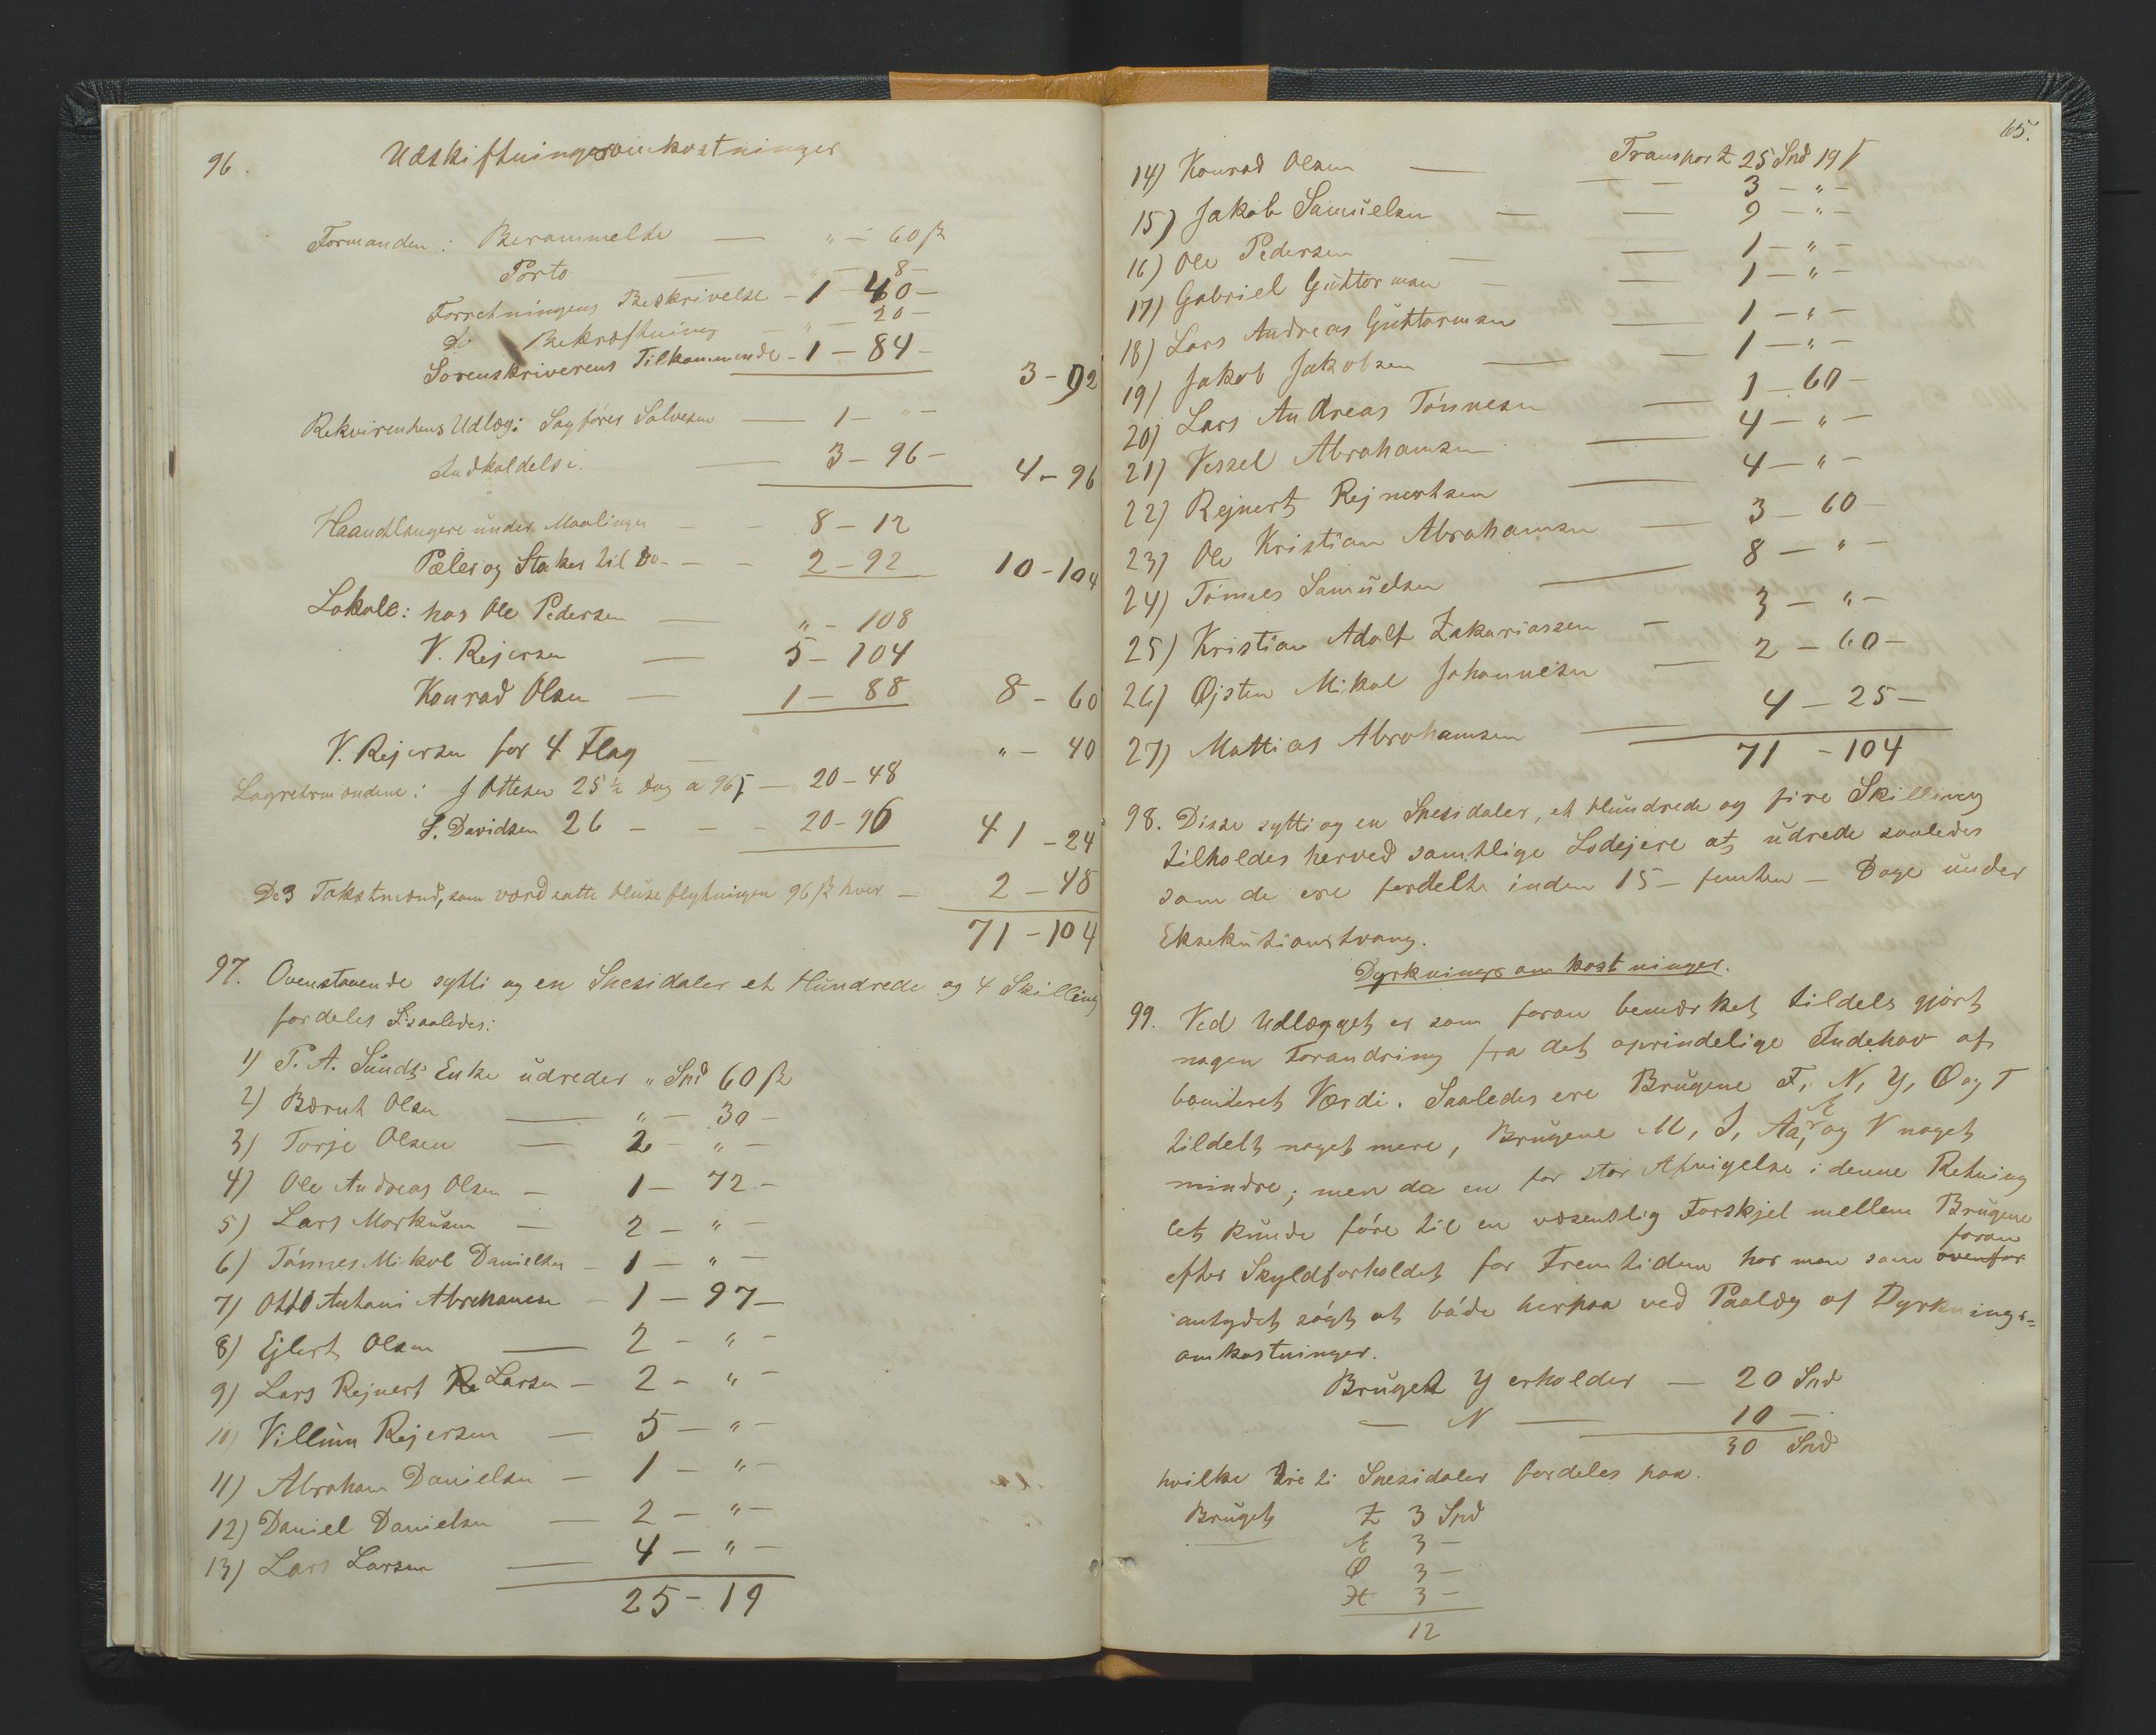 96. Udskiftningsomkostninger
Formanden: Berammelse — „ — 60 ß
Porto — „ — 8 —
Forretningens Beskrivelse — 1 — 40 —
Do Bekræftning — „ — 20 —
Sorenskriverens Tilkommende — 1 — 84 — 3 — 92
Rekvirentens Udlæg: Sagfører Salvesen — 1 — „ —
Indkaldelse. — 3 — 96 — 4 — 96
Haandlangere under Maalingen — — 8 — 12
Pæler og Staker til Do — — 2 — 92 10 — 104
Lokale: hos Ole Pedersen — „ — 108
V. Rejersen — 5 — 104
Konrad Olsen — 1 — 88 8 — 60
V. Rejersen for 4 Flag — „ — 40
Lagretmændene: J Ottesen 25 ½ Dag a 96 ß — 20 — 48
S. Davidsen 26 — — — 20 — 96 41 — 24
De 3 Takstmænd, som værdsatte Huseflytningen 96 ß hver — 2 — 48
71 — 104
97. Ovenstaaende sytti og en Spesidaler et Hundrede og 4 Skilling
fordeles saaledes:
1) P. A. Sunds Enke udreder „ Spd 60 ß
2) Bærnt Olsen — „ — 30 —
3) Torje Olsen — 2 — „ —
4) Ole Andreas Olsen — 1 — 72 —
5) Lars Markusen — 2 — „ —
6) Tönnes Mikal Danielsen — 1 — „ —
7) Otto Antoni Abrahamsen — 1 — 97 —
8) Ejlert Olsen — 2 — „ —
9) Lars Rejnert Re Larsen — 2 — „ —
10) Villum Rejersen — 5 — „ —
11) Abraham Danielsen — 1 — „ —
12) Daniel Danielsen — 2 — „ —
13) Lars Larsen — 4 — „ —
25 — 19
65.
Transport 25 Spd 19 ß
14) Konrad Olsen — 3 — „ —
15) Jakob Samuelsen — 9 — „ —
16) Ole Pedersen — 1 — „ —
17) Gabriel Guttormsen — 1 — „ —
18) Lars Andreas Guttormsen — 1 — „ —
19) Jakob Jakobsen — 1 — „ —
20) Lars Andreas Tönnesen — 1 — 60 —
21) Vessel Abrahamsen — 4 — „ —
22) Rejnert Rejnertsen — 4 — „ —
23) Ole Kristian Abrahamsen — 3 — 60 —
24) Tönnes Samuelsen — 8 — „ —
25) Kristian Adolf Zakariassen — 3 — „ —
26) Øjsten Mikal Johannesen — 2 — 60 —
27) Mattias Abrahamsen — 4 — 25 —
71 — 104
98. Disse sytti og en Spesidaler, et Hundrede og fire Skilling
tilholdes herved samtlige Lodejere at udrede saaledes
som de ere fordelte inden 15 — femten — Dage under
Eksekutionstvang.
Dyrkningsomkostninger.
99. Ved Udlægget er som foran bemærket tildels gjort
nogen Forandring fra det oprindelige Indehav af
boniteret Værdi. Saaledes ere Brugene F, N, Y, O og T
tildelt noget mere, Brugene M, I, Aa, Æ og V noget
mindre; men da en for stor Afvigelse i denne Retning
let kunde före til en væsentlig Forskjel mellem Brugene
efter Skyldforholdet for Fremtiden har man som ovenfor foran
antydet sögt at böde herpaa ved Paalæg af Dyrknings=
omkostninger.
Bruget Y erholder — 20 Spd
— N — 10 —
30 Spd
hvilke treti Spesidaler fordeles paa.
Bruget Z 3 Spd
Æ 3 —
Ø 3 —
H 3 —
12